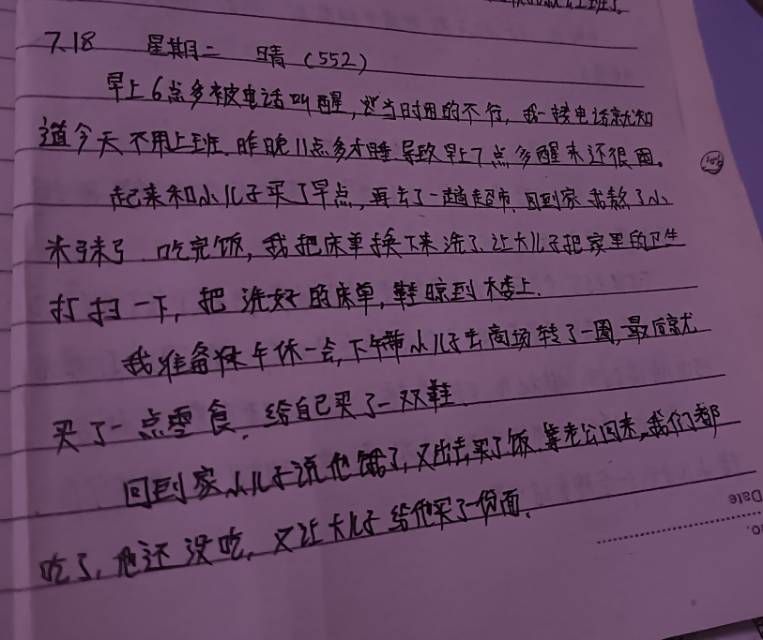 7.18 星期二 晴 (552)
早上6点多被电话叫醒,当时困的不行,我一接电话就知
道今天不用上班.昨晚11点多才睡导致早上7点多醒来还很困。
起来和小儿子买了早点,再去了一趟超市.回到家我熬了小
米粥.吃完饭,我把床单换下来洗了.让大儿子把家里的卫生
打扫一下,把洗好的床单,鞋晾到楼上.
我准备午休一会,下午带小儿子去商场转了一圈,最后就
买了一点零食.给自己买了一双鞋.
回到家小儿子说他饿了,又出去买了饭.等老公回来,我们都
吃了,他还没吃,又让大儿子给他买了一份面.
Date